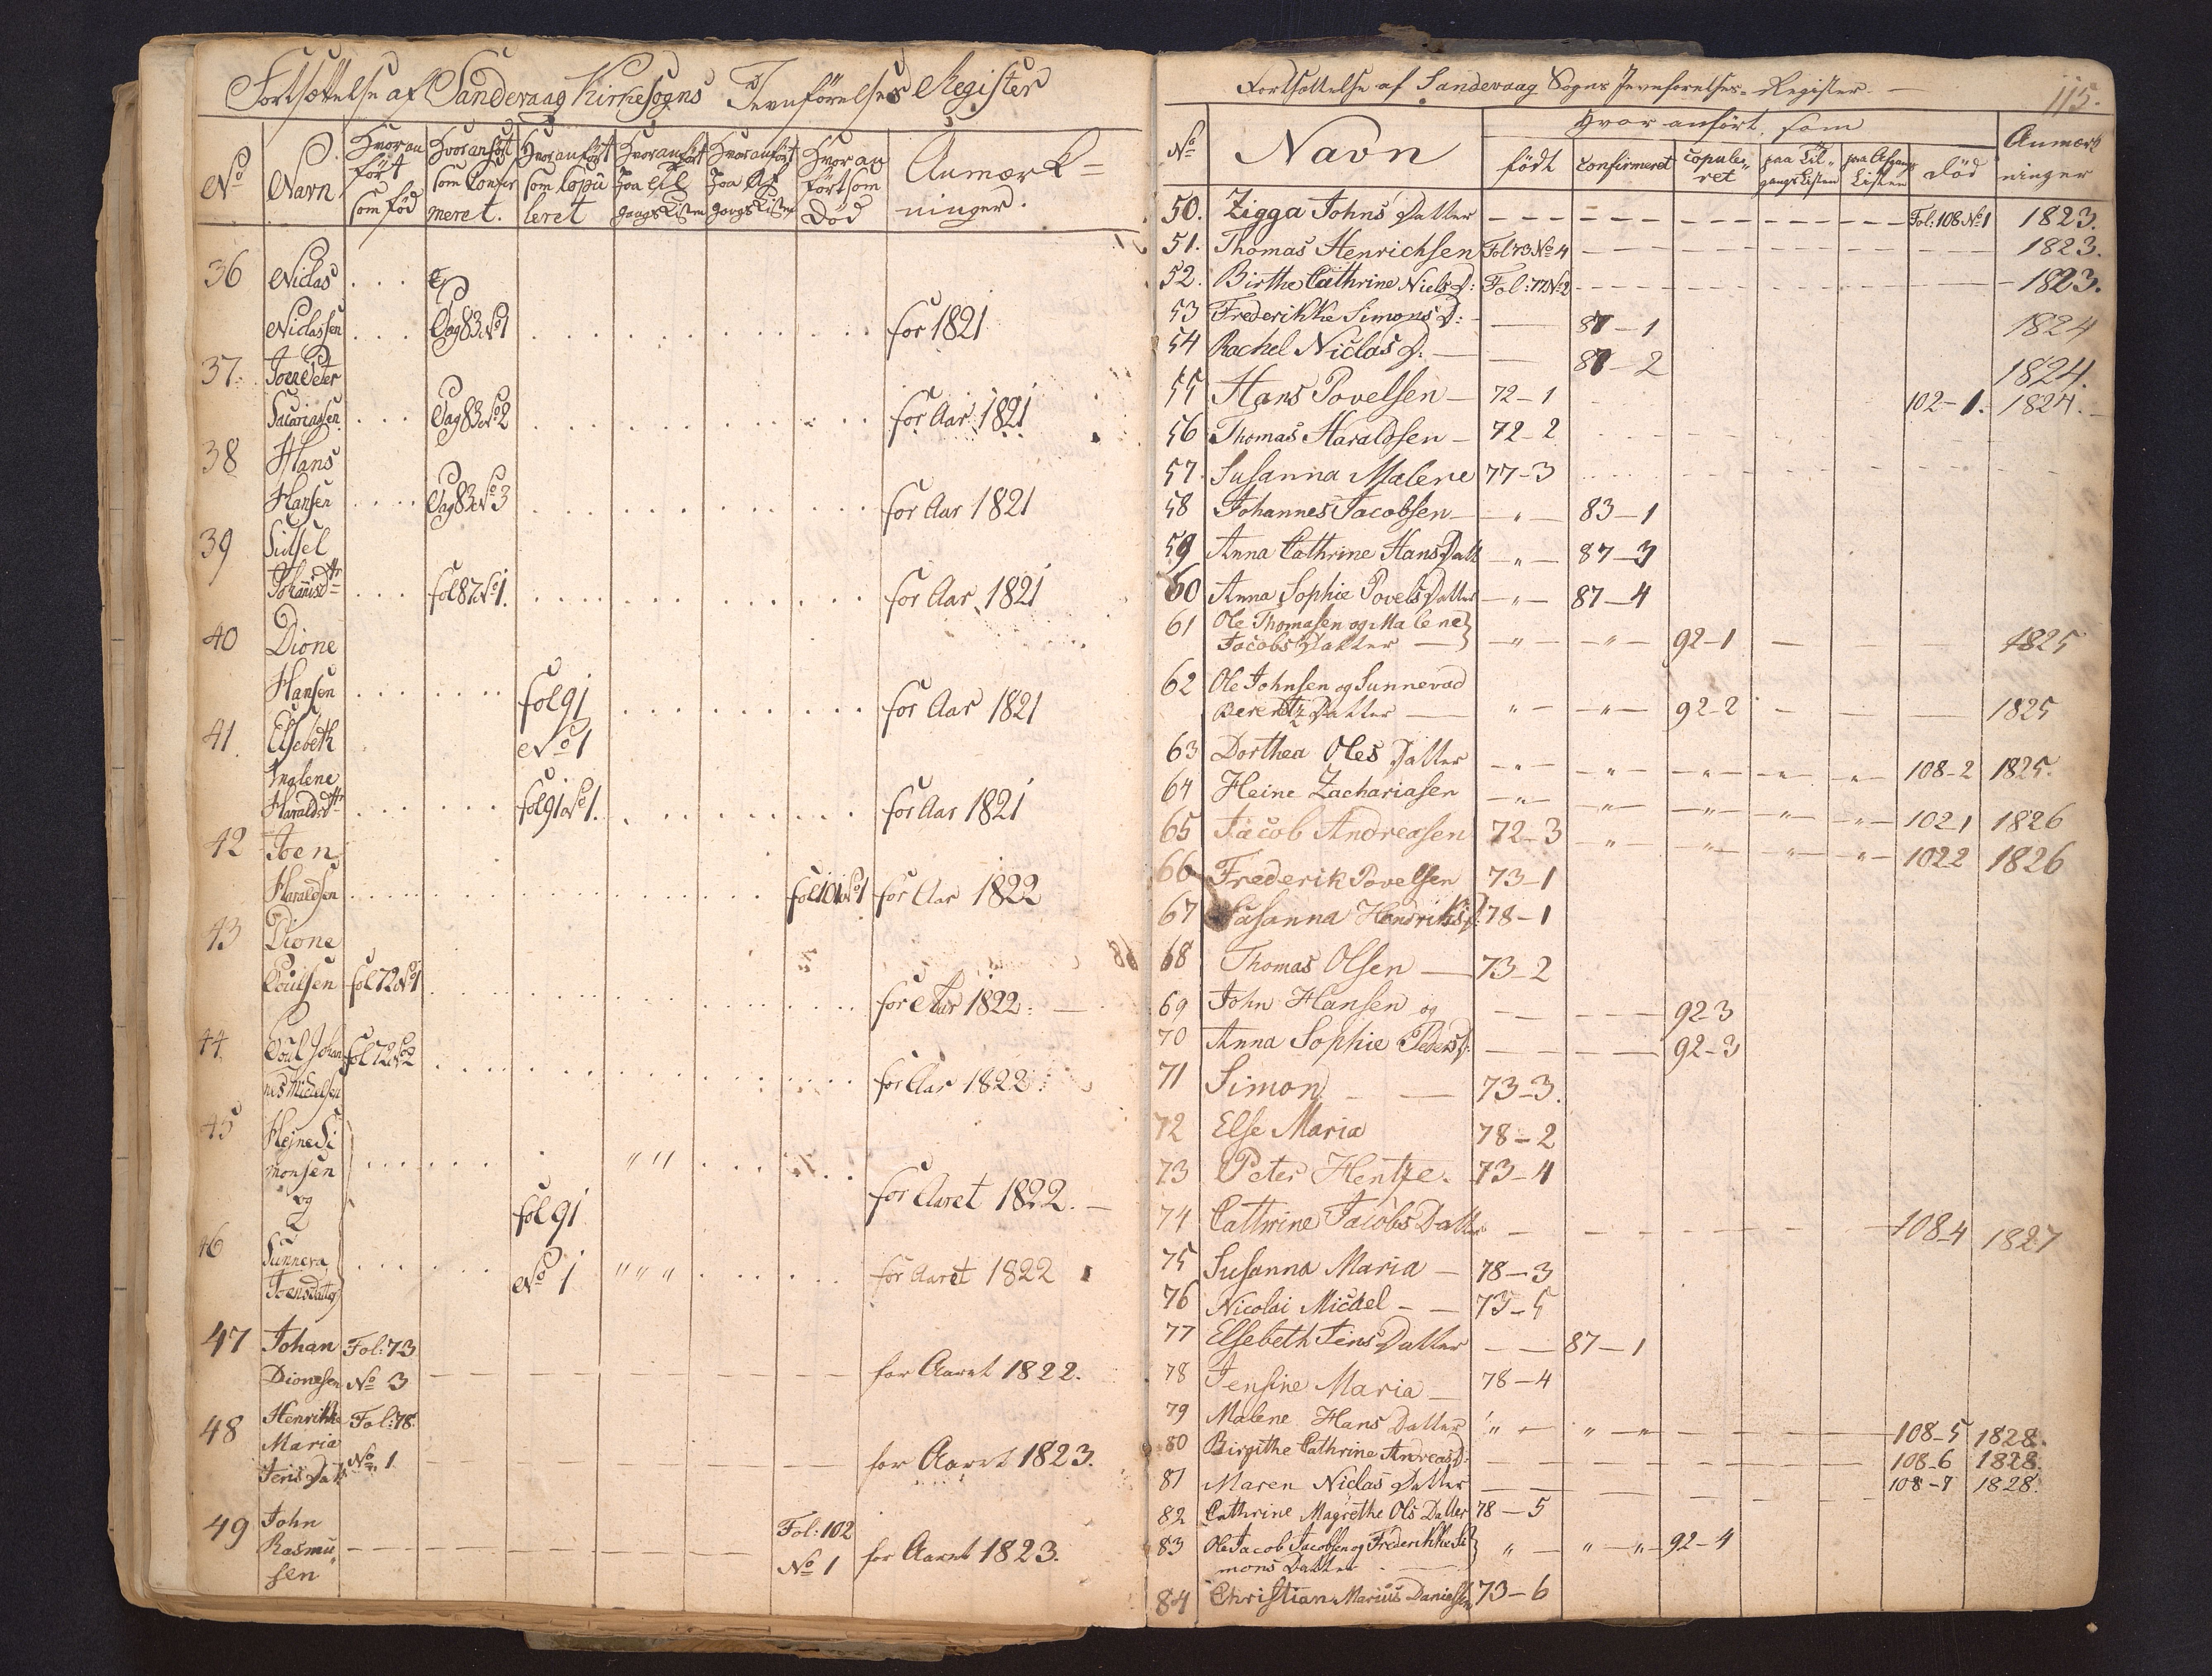 Fortsættelse af Sandevaag Kirkesogns Jevnförelses Register
No Navn Hvor anfört som föd Hvor anfört som Confirmeret. Hvor anfört som Copuleret Hvor anfört paa Tilgangs Listen Hvor anfört paa Afgangs Listen Hvor anfört som Död Anmærkninger.
36 Niclas
Niclassen Pag 83 No 1 for 1821
37. Joen Peter
Sacariassen. Pag 83 No 2 for Aar 1821
38 Hans
Hansen Pag 83 No 3 for Aar 1821
39 Sidsel
Johannisdtr fol 87 No 1. for Aar 1821
40 Dione
Hansen fol 91 for Aar 1821
No 1
41. Elsebeth
Malene
Haraldsdtr fol 91 No 1. for Aar 1821
42 Joen
Haraldsen fol 101 No 1 for Aar 1822
43 Dione
Poulsen fol 72 No 1 for Aar 1822.
44. Poul Johan fol 72 No 2
nes Michelsen for Aar 1822.
45 Hejne Si
monsen " "
og fol 91 for Aaret 1822.
46 Sunneva
Joensdatter No 1 " " " for Aaret 1822
47 Johan Fol: 73
Dionesen No 3 for Aaret 1822.
48 Henrikke Fol: 78.
Maria No 1 for Aaret 1823.
Jens Datt
49 John Fol: 102
Rasmu No 1 for Aaret 1823.
sen
Fortsættelse af Sandevaag Sogns Jevnforelses-Register. 115.
No Navn Hvor anfört, som Anmærkninger
födt confirmeret copuleret paa Tilgangs Listen paa Afgangs Listen död
50. Zigga Johns Datter Fol: 108 No 1 1823.
51. Thomas Henrichsen Fol 73 No 4 1823.
52. Birthe Cathrine Niels D: Fol: 77 No 2 1823.
53 Frederikke Simons D: 87-1 1824
54 Rachel Niclas D. 87-2 1824.
55 Hans Povelsen 72-1 102-1. 1824.
56 Thomas Haraldsen 72-2
57. Susanna Malene 77-3
58 Johannes Jacobsen 83-1
59 Anna Cathrine Hans Datt 87-3
60 Anna Sophie Povels Datter 87-4
61 Ole Thomasen og Malene
Jacobs Datter 92-1 1825
62 Ole Johnsen og Sunnevad
Berentz Datter 92-2 1825
63 Dorthea Oles Datter 108-2 1825.
64 Heine Zachariasen 102 1 1826
65 Jacob Andreasen 72-3 102 2 1826
66 Frederik Povelsen 73-1
67 Susanna Hendriks D: 78-1
68 Thomas Olsen 73-2
69 John Hansen og 92-3
70 Anna Sophie Peders D. 92-3
71 Simon 73-3.
72 Else Maria 78-2
73 Peter Hentze. 73-4
74 Cathrine Jacobs Datter 108-4 1827
75 Susanna Maria 78-3
76 Nicolai Michel 73-5
77 Elsebeth Jens Datter 87-1
78 Jensine Maria 78-4
79 Malene Hans Datter 108-5 1828.
80 Birgithe Cathrine Andreas D. 108-6 1828.
81 Maren Niclas Datter 108-7 1828.
82 Cathrine Magrethe Ols Datter 78-5
83 Ole Jacob Jacobsen og Frederikke Si
mons Datter 92-4
84 Christian Marius Danielsen 73-6